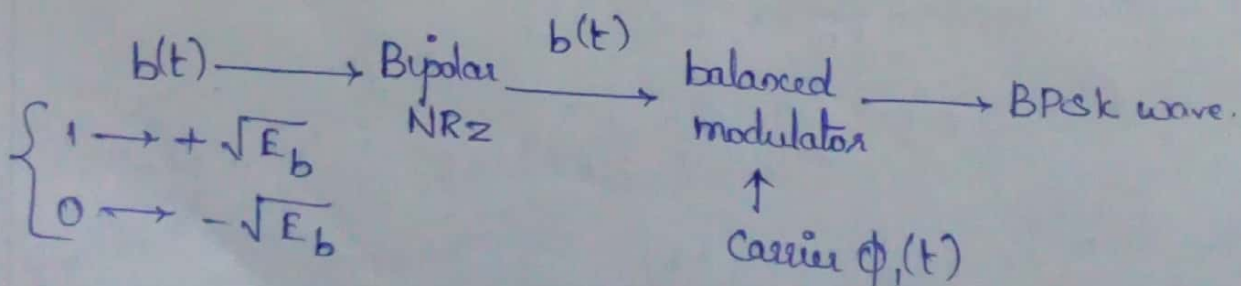 b(t) → Bipolar NRZ b(t) → balanced modulator → BPSK wave.
{ 1 → + √E_b
0 → - √E_b
↑
Carrier ϕ₁(t)